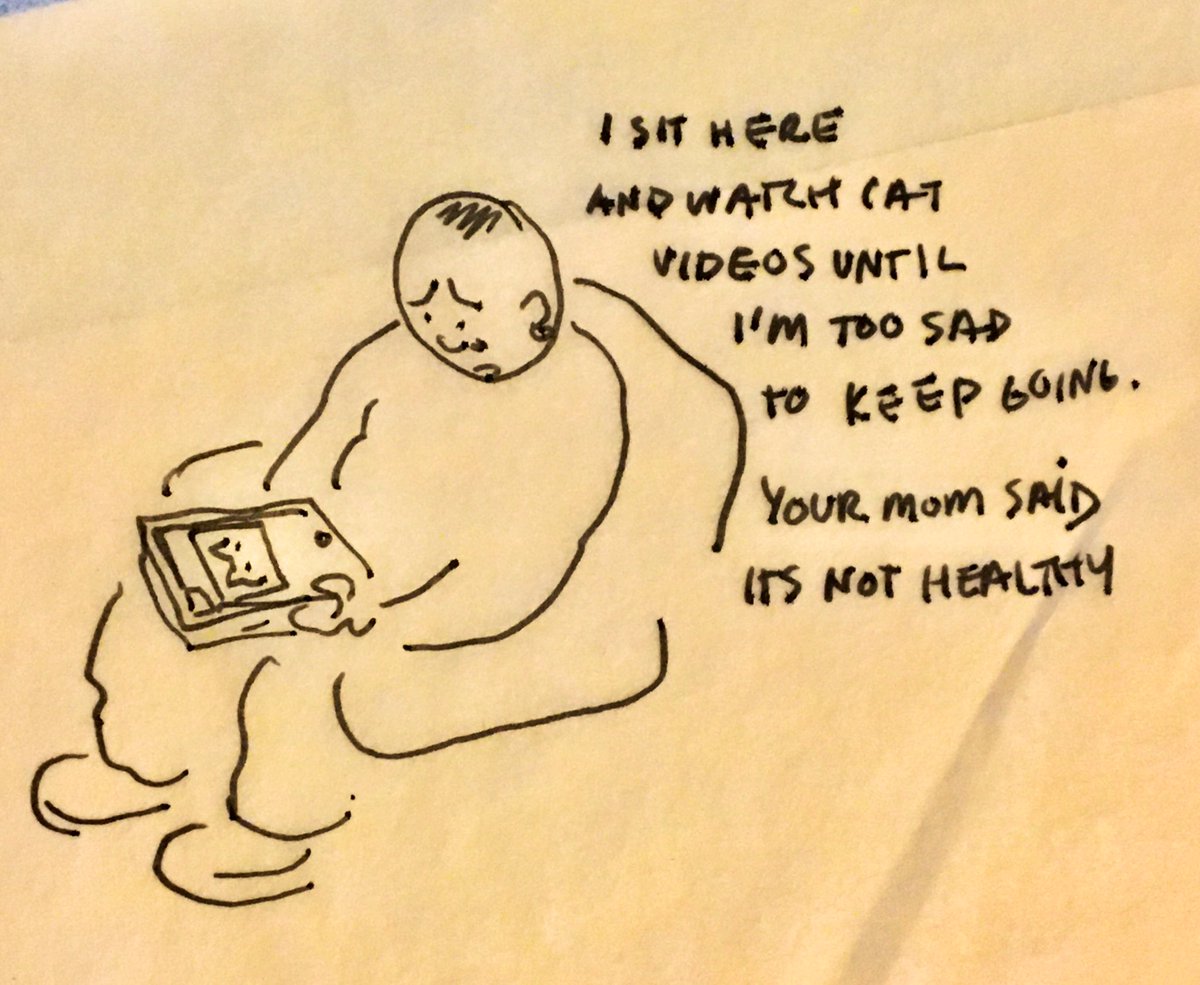 I SIT HERE
AND WATCH CAT
VIDEOS UNTIL
I'M TOO SAD
TO KEEP GOING.
YOUR MOM SAID
ITS NOT HEALTHY